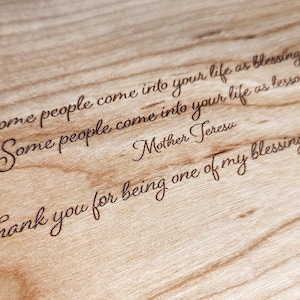 ome people come into your life as blessing
Some people come into your life as lesso
- Mother Teresa
hank you for being one of my blessing